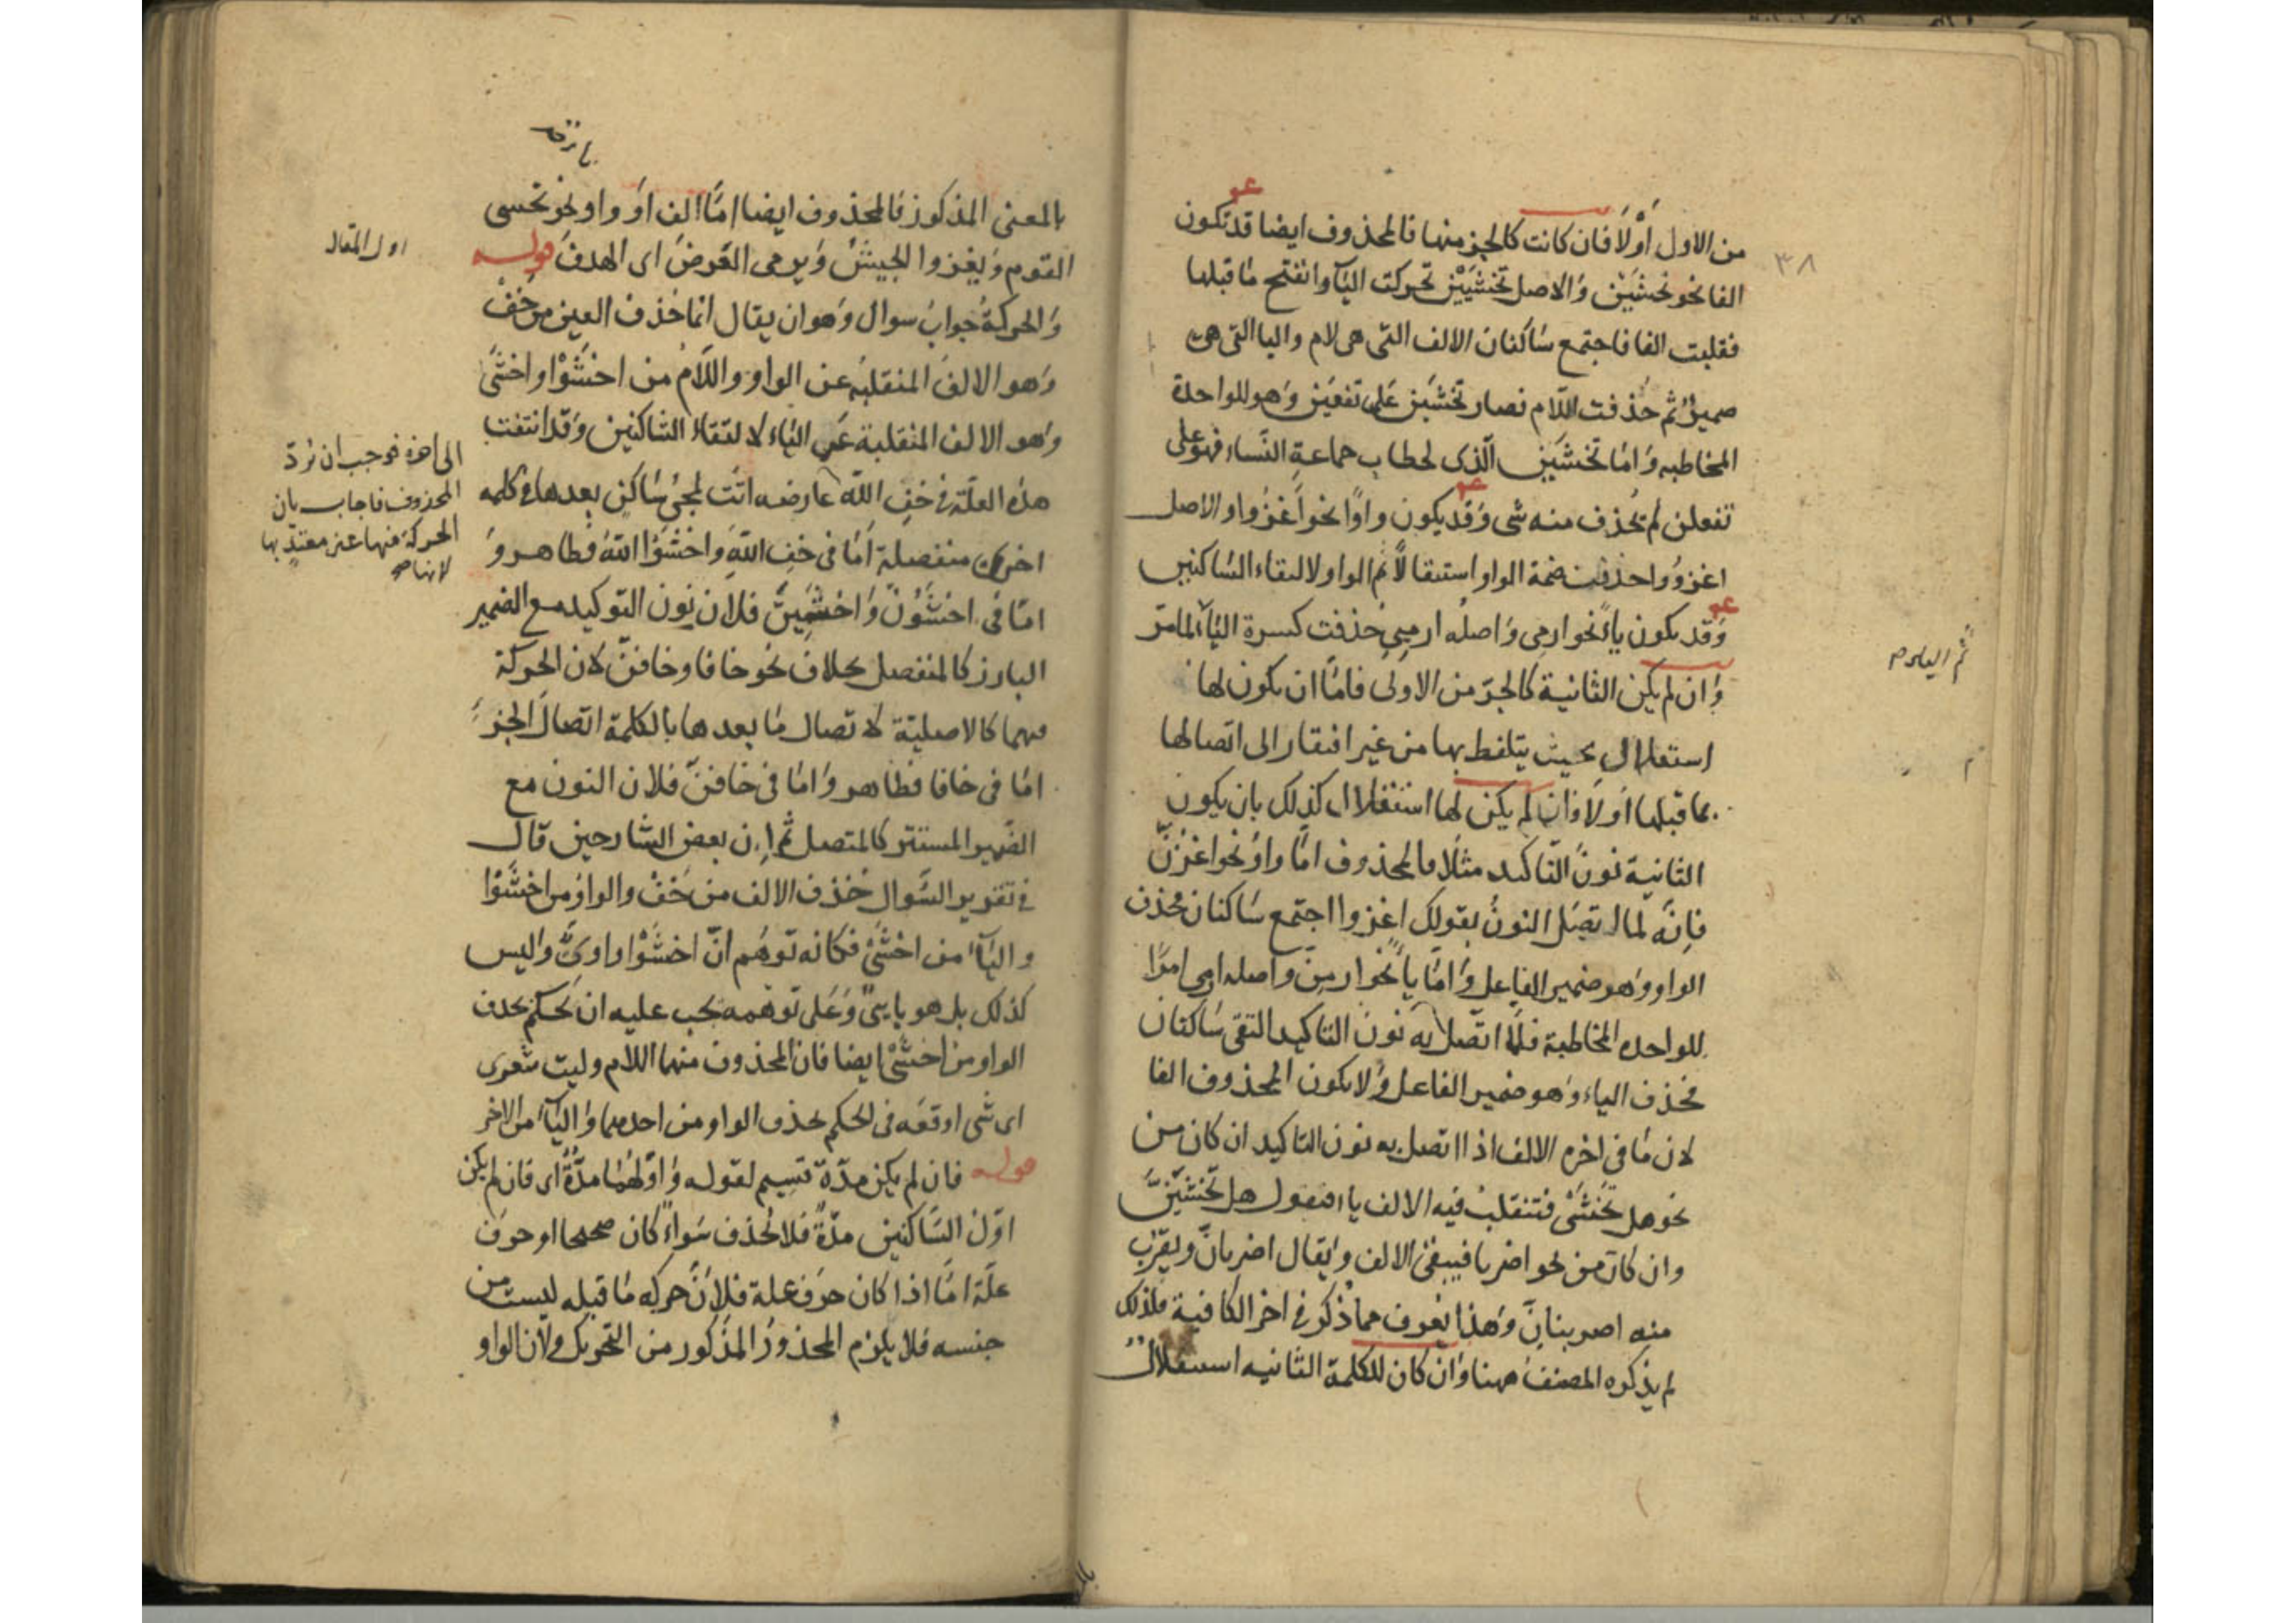 ٣٨
من الاول أوْلَا فان كانت كالجزء منها فالمحذوف ايضا قد تكون
الفا نحو تخشَيْن وَالاصل تخشَيِيْن تحركت اليآ وانفتح مَا قبلها
فقلبت الفا فاجتمع سَاكنان الالف التى هى لام واليا التى هى
ضميرٌ ثم حُذفت اللّام فصار تخشَين عَلى تفعَين وَهو للواحدة
المخاطبه وَامّا تخشَين الّذى لخطاب جماعةِ النّساء فهو على
تفعلن لم يُحذف منه شى وَقد يكون واوًا نحو اُغزُوا والاصل
اغزُوُوا حذفت ضمة الواو استثقالًا ثم الواو لالتقاء السّاكنين
وَقد يكون ياءً نحو ارمِى وَاصلُه ارمِيِى حُذفت كسرة اليَآ لما مرّ
ثم الياء م
وَان لم يكن الثانية كالجزء من الاولى فامّا ان يكون لها
استقلال بحيث يتلفظ بها من غير افتقار الى اتصالها
بما قبلها اوَلَا فان لم يكن لها استقلال كذلك بان يكون
الثانية نونَ التّاكيد مثلًا فالمحذوف امّا واوٌ نحو اغزُنَّ
فإنّه لما اتصَل النونُ بقولك اغزوا اجتمع سَاكنان فحذف
الواو وَهو ضمير الفاعل وَامّا ياءٌ نحو ارمِنّ واصله ارمى امرًا
للواحده المخاطبة فلمّا اتّصل به نونُ التاكيد التقى سَاكنان
فحُذف الياء وَهو ضمير الفاعل وَلا يكون المحذوف الفا
لان مَا فى اخره الالف اذا اتصل به نون التاكيد ان كان من
نحو هل تَخْشَى فتنقلبُ فيه الالف ياء فتقول هل تَخْشَيَنَّ
وان كان من نحو اضربا فيبقى الالف وَيقال اضربانّ ويقرّب
منه اضربنانّ وَهذا يعرف مما ذُكر فى اخر الكافية فلذلك
لم يذكره المصنفُ ههنا وَان كان للكلمة الثانيه استقلالٌ
بالمعنى المذكور فالمحذوف ايضا امَّا الف اوَ واو نحو تخشى
القوم وَيغزوا الجيشُ وَيرمى الغَرضَ اى الهدفَ قوله
وَالحركةُ جوابُ سوال وَهو ان يقال انّما حُذف العين من خَفْ
وَهو الالفُ المنقلبَه عن الواو واللّامُ من اخشَوْا واخشَى
وَهو الالف المنقلبة عن اليَاء لالتقاءِ السّاكنين وَقد انتفت
هذه العلّة فى خفِ اللّه
الى اخره فوجب ان نردّ
المحذوف فاجاب بان
الحركة فيها غير معتدٍّ بها
لانها
عارضه اتت لمجئ سَاكن بعدها فى كلمه
اخرى منفصلة اَمّا فى خفِ اللّهِ وَاخشَوُا اللّهَ فظاهر وَ
امّا فى اخشَوُنَّ وَاخشَيِنَّ فلان نون التّوكيد مع الضمير
البارز كالمنفصل بخلاف نحو خافا وخافنّ لان الحركة
فيهما كالاصليّة لاتصال مَا بعدها بالكلمة اتصالَ الجزء
امّا فى خافا فظاهر وَامّا فى خافنّ فلان النون مع
الضّمير المستتر كالمتصل ثم إن بعض الشّارحين قال
فى تقرير السّوال حُذف الالف من خَفْ والواوُ من اخشَوْا
واليَآءُ من اخشَىْ فكانه توهُّم انّ اخشَوْا واوىٌّ وَليس
كذلك بل هو يايىٌّ وَعَلى توهّمه يجب عليه ان يحكم بحذف
الواو من اخشَىْ ايضا فان المحذوف منهما اللام وليت شعرى
اى شى اوقعَه فى الحكم بحذف الواو من احدهما وَاليَآءِ من الاخر
قوله فان لم يكن مدّة قسيم لقوله وَاوّلهُمَا مدّةٌ اى فان لم يكن
اوّلُ السَّاكنين مدّةً فلا يُحذف سَواءٌ كان صحيحا او حرفَ
علّة امّا اذا كان حرفَ علة فلانَّ حركة مَا قبله ليست من
جنسه فلا يلزم المحذورُ المذكور من التحريك ولانّ الواو